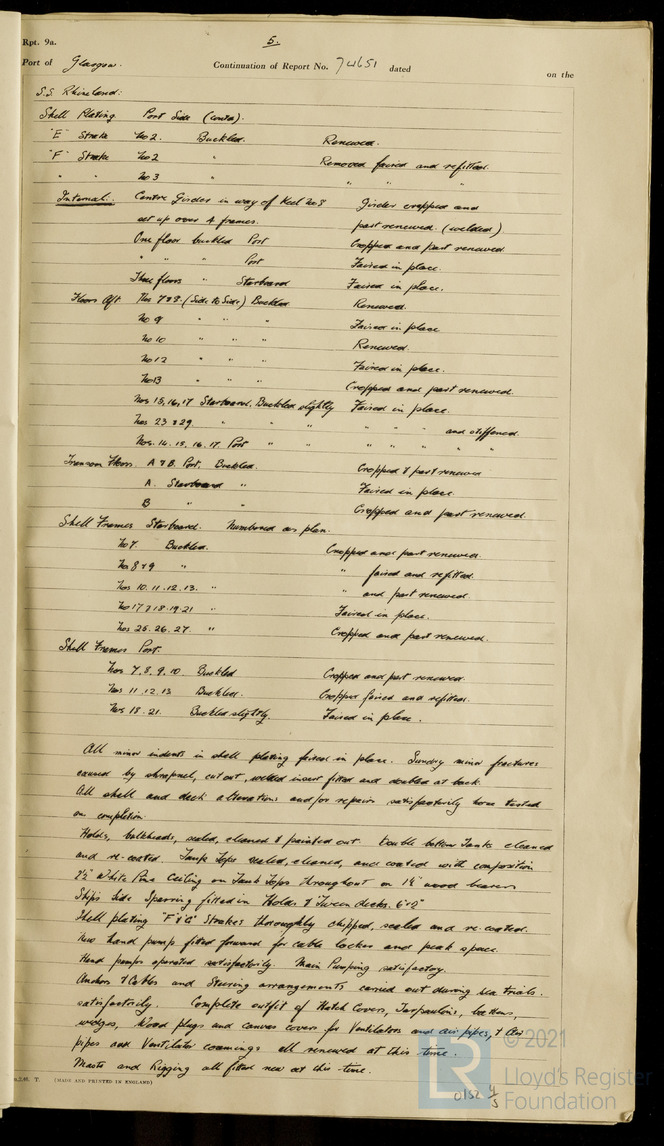 Rpt. 9a. 5.
Port of Glasgow. Continuation of Report No. 74651 dated on the
S.S. Rhineland.
Shell Plating Port Side (contd).
"E" Strake No 2. Buckled. Renewed.
"F" Strake No 2 " Removed faired and refitted.
" " No 3 " " " "
Internal: Centre Girder in way of Keel No 8 Girder cropped and
set up over 4 frames. part renewed. (welded)
One floor buckled Port Cropped and part renewed
" " " Port Faired in place.
Three floors " Starboard Faired in place.
Floors Aft Nos 7 & 8. (Side to Side) Buckled Renewed.
No 9 " " " Faired in place
No 10 " " " Renewed.
No 12 " " " Faired in place.
No 13 " " " Cropped and part renewed.
Nos 15, 16, 17 Starboard. Buckled slightly Faired in place.
Nos 23 & 29. " " " " " " and stiffened.
Nos. 14. 15. 16. 17 Port " " " " "
Transom Floors A & B. Port. Buckled. Cropped & part renewed
A. Starboard " Faired in place.
B " " Cropped and part renewed.
Shell Frames Starboard. Numbered as plan.
No 7. Buckled. Cropped and part renewed.
Nos 8 & 9 " " faired and refitted.
Nos 10. 11. 12. 13. " " and part renewed.
No 17 & 18. 19. 21 " Faired in place.
Nos 25. 26. 27. " Cropped and part renewed.
Shell Frames Port.
Nos 7, 8, 9, 10 Buckled Cropped and part renewed.
Nos 11. 12. 13 Buckled. Cropped faired and refitted.
Nos 18. 21. Buckled slightly. Faired in place.
All minor indents in shell plating faired in place. Sundry minor fractures
caused by shrapnel, cut out, welded insert fitted and doubled at back.
All shell and deck alterations and/or repairs satisfactorily hose tested
on completion.
Holds, bulkheads, scaled, cleaned & painted out. Double bottom Tanks cleaned
and re-coated. Tank Tops scaled, cleaned, and coated with composition
2½" White Pine Ceiling on Tank Tops throughout on 1½" wood bearers
Ships Side Sparring fitted in Holds & 'Tween decks. 6"x2"
Shell plating "F & G" Strakes thoroughly chipped, scaled and re-coated.
New hand pump fitted forward for cable locker and peak space.
Hand pumps operated satisfactorily. Main Pumping satisfactory.
Anchors & Cables and Steering arrangements carried out during sea trials.
satisfactorily. Complete outfit of Hatch Covers, Tarpaulins, battens,
wedges, Wood plugs and canvas covers for Ventilators and air pipes, & Air
pipes and Ventilator coamings all renewed at this time.
Masts and Rigging all fitted new at this time.
T. (MADE AND PRINTED IN ENGLAND)
© 2021
LR Lloyd's Register
Foundation
0152 4/5